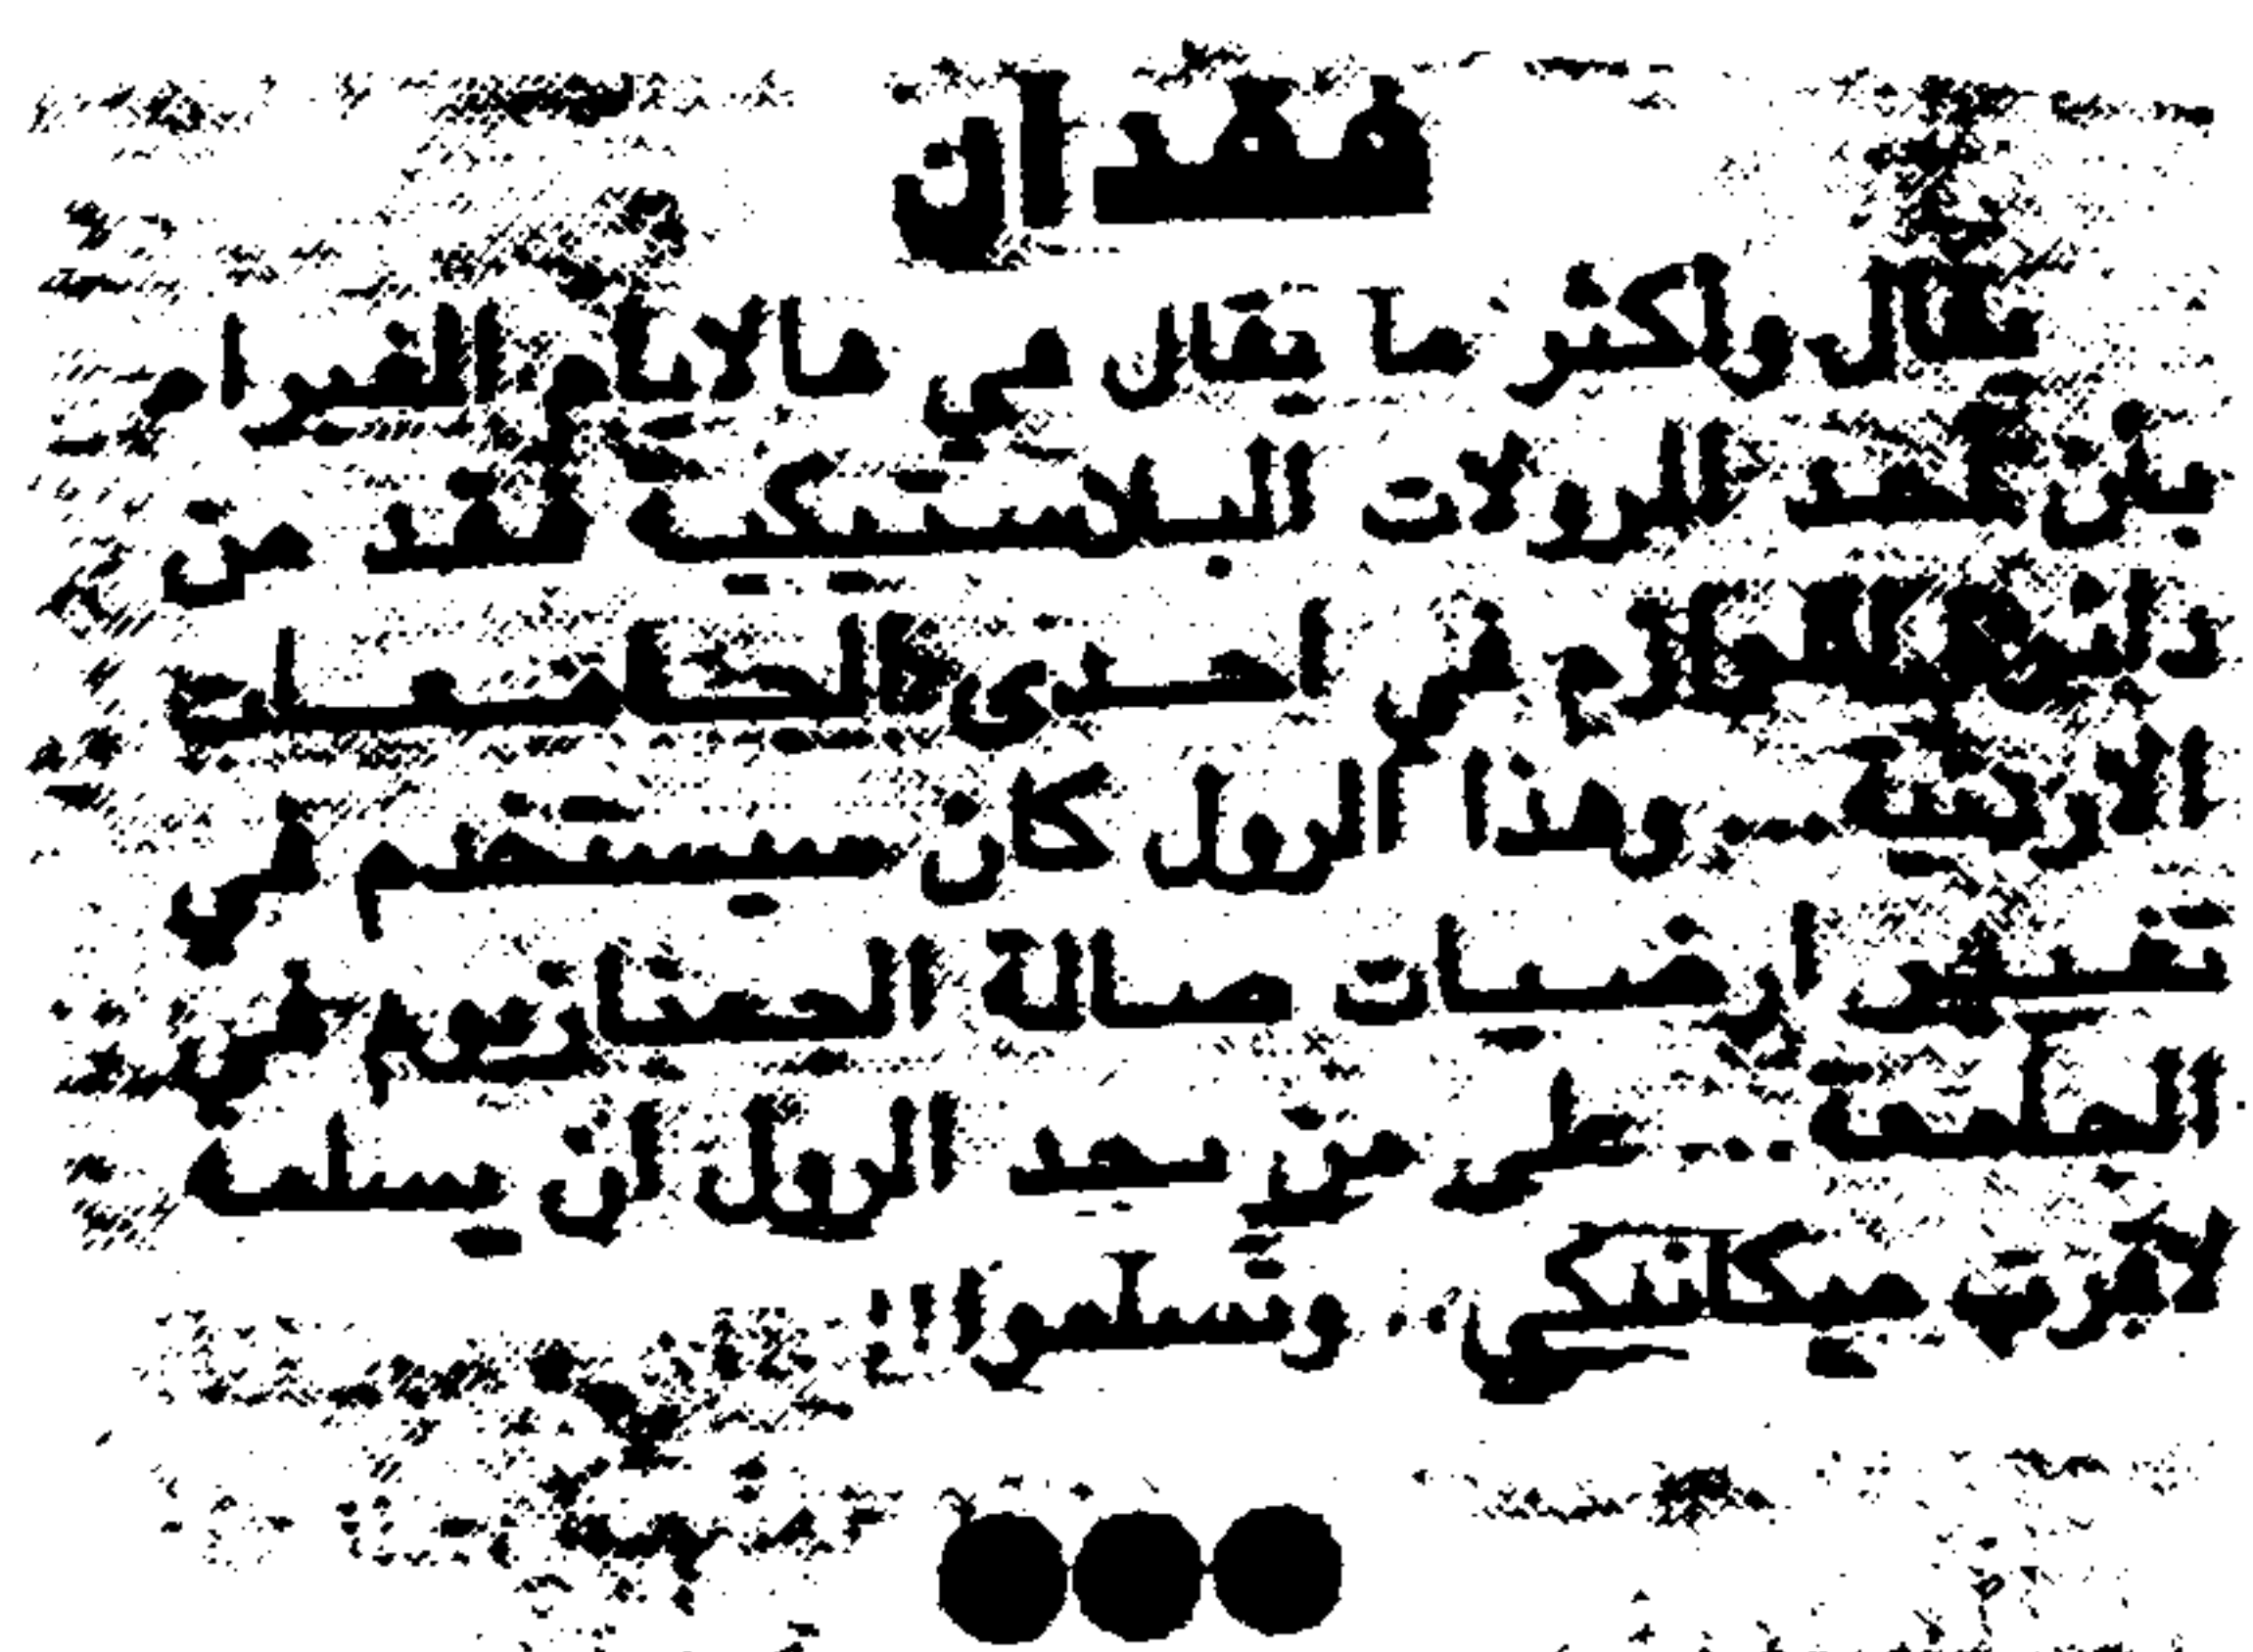 فقدان
يقال واكثر ما يقال في هالايام الغبرام
بان احد الرولات البلاستيك فقد من
دائرة اللوازم في احدى الجامعات
الاردنية ... وهذا الرول كان يستخدم في
تقشير ارضيات صالة الجمنازيوم في
الجامعة ... على من يجد الرول ان يسلمه
لاقرب ميكانيكي .. وتسلموا !!